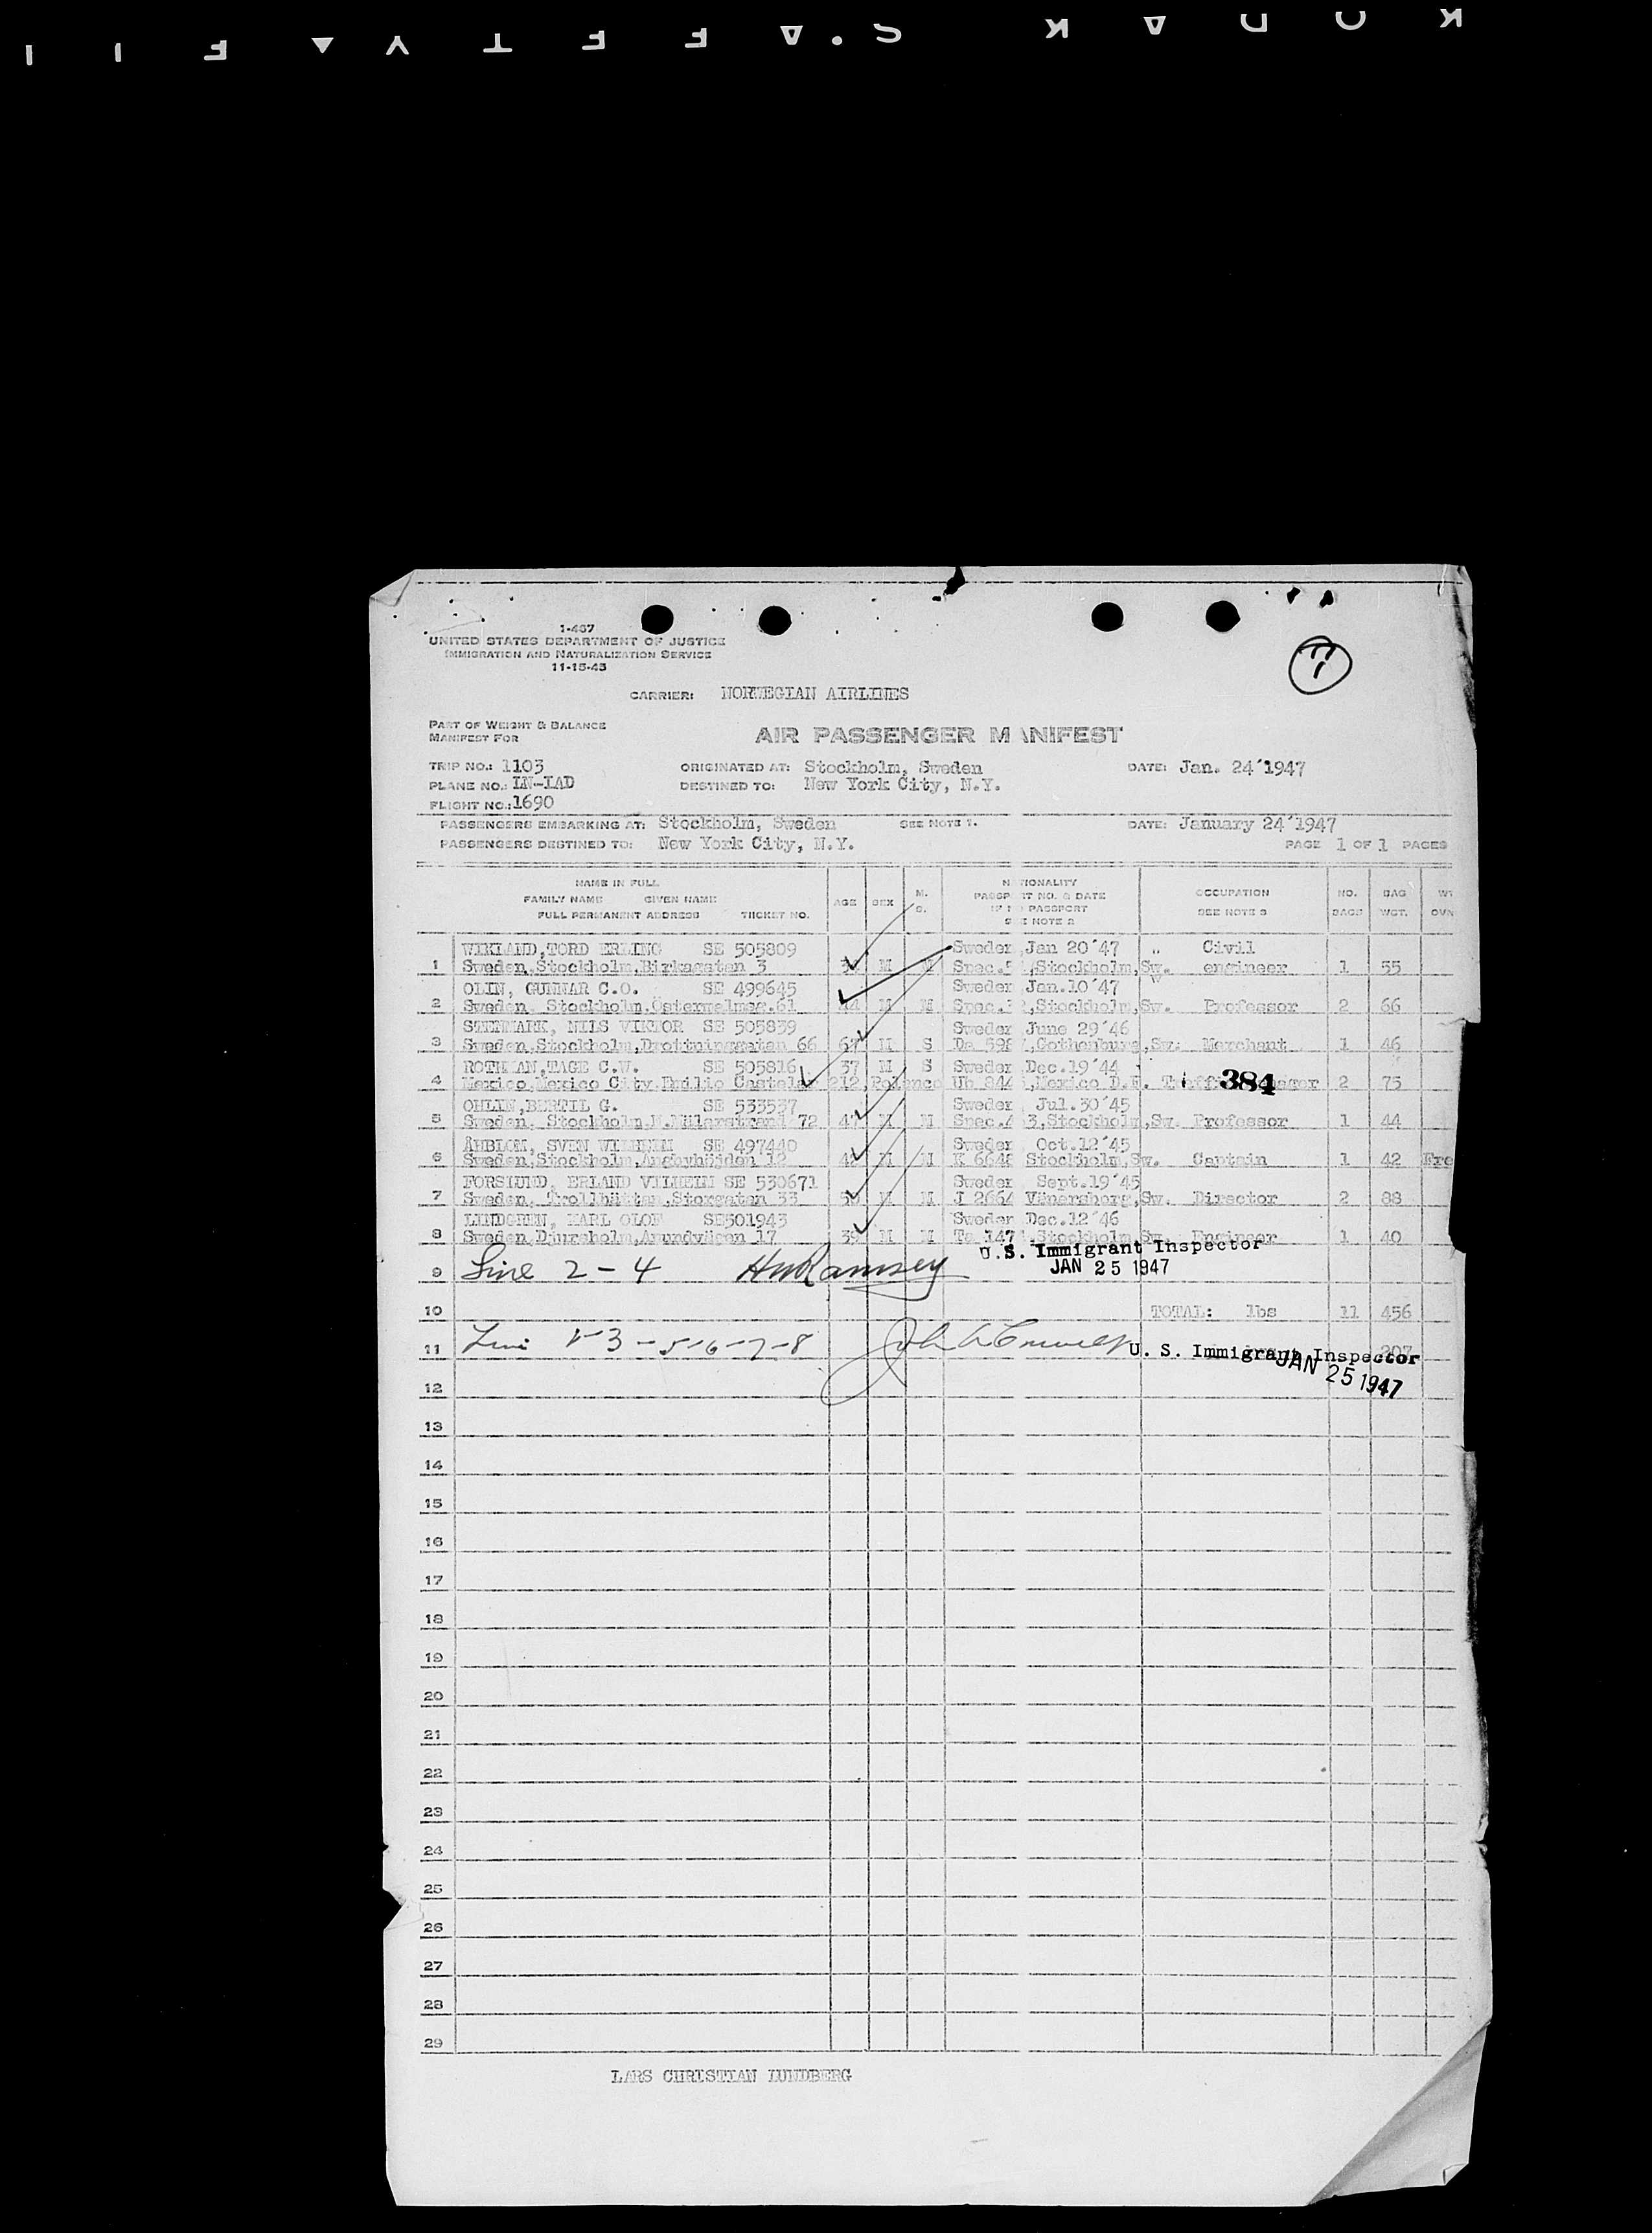 KODAK S.AFETY FI
1-467
UNITED STATES DEPARTMENT OF JUSTICE
IMMIGRATION AND NATURALIZATION SERVICE
11-15-45
CARRIER: NORWEGIAN AIRLINES
PART OF WEIGHT & BALANCE
MANIFEST FOR
AIR PASSENGER MANIFEST
TRIP NO.: 1103 ORIGINATED AT: Stockholm, Sweden DATE: Jan. 24´1947
PLANE NO.: LN-IAD DESTINED TO: New York City, N.Y.
FLIGHT NO.: 1690
PASSENGERS EMBARKING AT: Stockholm, Sweden SEE NOTE 1. DATE: January 24´1947
PASSENGERS DESTINED TO: New York City, N.Y. PAGE 1 OF 1 PAGES
NAME IN FULL M. NATIONALITY
FAMILY NAME GIVEN NAME AGE SEX PASSPORT NO. & DATE OCCUPATION NO. BAG
S. IF NO PASSPORT
FULL PERMANENT ADDRESS TICKET NO. SEE NOTE 2 SEE NOTE 3 BAGS WGT. OWN
WIKLAND, TORD ERLING SE 505809 Sweden Jan 20´47 Civil
1 Sweden, Stockholm, Birkagatan 3 M M Spec.5 ,Stockholm,Sw. engineer 1 55
OLIN, GUNNAR C.O. SE 499645 Sweden Jan.10´47
2 Sweden, Stockholm, Östermalmsg.61 44 M M Spec. ,Stockholm,Sw. Professor 2 66
STENMARK, NILS VIKTOR SE 505839 Sweden June 29´46
3 Sweden, Stockholm, Drottninggatan 66 67 M S Da 598 ,Gothenburg,Sw. Merchant 1 46
ROTHMAN, TAGE C.W. SE 505816 37 M S Sweden Dec.19´44
4 Mexico, Mexico City, Emilio Castelar 212, Polanco Ub 844 ,Mexico D.F. 384 2 75
OHLIN, BERTIL G. SE 533537 Sweden Jul.30´45
5 Sweden, Stockholm, N.Mälarstrand 72 47 M M Spec.4 3,Stockholm,Sw. Professor 1 44
ÅHBLOM, SVEN WILHELM SE 497440 Sweden Oct.12´45
6 Sweden, Stockholm, Ängbyhöjden 12 M M K 6648 Stockholm,Sw. Captain 1 42 Fre
FORSLUND, ERLAND VILHELM SE 530671 Sweden Sept.19´45
7 Sweden, Trollhättan, Storgatan 33 M M J 2664 Vänersborg,Sw. Director 2 88
LINDGREN, KARL OLOF SE501943 Sweden Dec.12´46
8 Sweden, Djursholm, Amundvägen 17 39 M M Ta 147 ,Stockholm Sw. Engineer 1 40
U.S. Immigrant Inspector
9 Line 2-4 HW Ramsey JAN 25 1947
10 TOTAL: lbs 11 456
11 Line 1-3-5-6-7-8 U. S. Immigrant Inspector
JAN 25 1947
12
13
14
15
16
17
18
19
20
21
22
23
24
25
26
27
28
29
LARS CHRISTIAN LUNDBERG